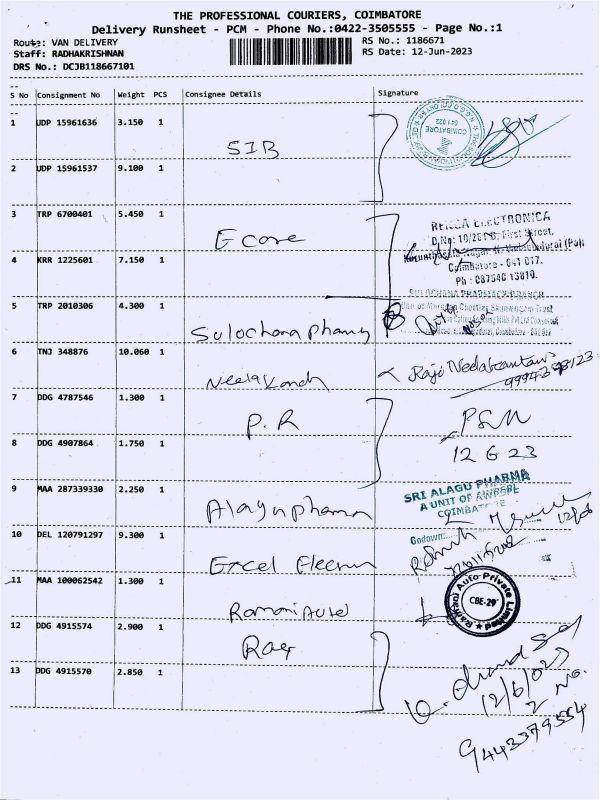 THE PROFESSIONAL COURIERS, COIMBATORE
Delivery Runsheet - PCM - Phone No.:0422-3505555 - Page No.:1
Route: VAN DELIVERY
RS No.: 1186671
Staff: RADHAKRISHNAN
RS Date: 12-Jun-2023
DRS No.: DCJB118667101
S No Consignment No Weight PCS Consignee Details Signature
1 UDP 15961636 3.150 1
SIB
COIMBATORE
641 022
2 UDP 15961537 9.100 1
3 TRP 6700401 5.450 1
Ecore
RENGA ELECTRONICA
First Street,
4 KRR 1225601 7.150 1
Coimbatore - 641 017.
Ph : 087540 13810.
5 TRP 2010306 4.300 1
SULOCHANA PHARMACY BRANCH
Sulochana
6 TNJ 348876 10.060 1
Neelakandh
Raji Neelakantan
7 DDG 4787546 1.300 1
P.R
8 DDG 4907864 1.750 1
12 6 23
9 MAA 287339330 2.250 1
Alagu pharma
SRI ALAGU PHARMA
A UNIT OF
COIMBATORE
Godown:
10 DEL 120791297 9.300 1
Excel
11 MAA 100062542 1.300 1
Ramani Auto
Ramani Auto Private Limited
CBE-29
12 DDG 4915574 2.900 1
13 DDG 4915570 2.850 1
12/6/023
2 No.
9443379554